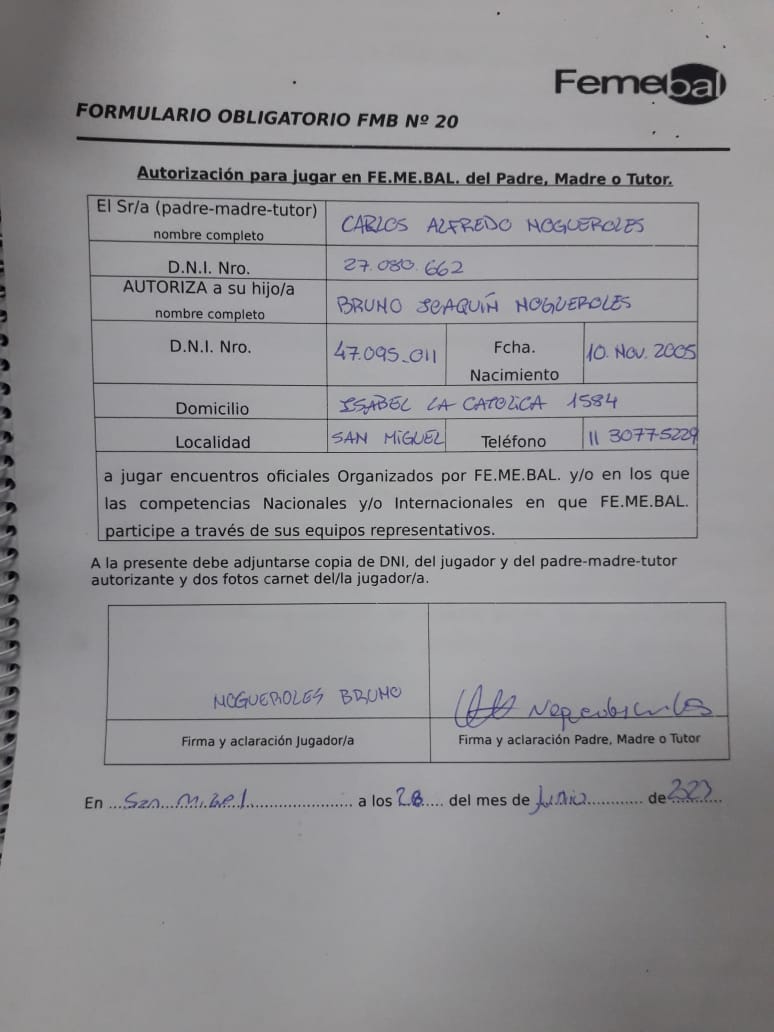 Femebal
FORMULARIO OBLIGATORIO FMB Nº 20
Autorización para jugar en FE.ME.BAL. del Padre, Madre o Tutor.
El Sr/a (padre-madre-tutor) nombre completo CARLOS ALFREDO NOGUEROLES
D.N.I. Nro. 27.080.662
AUTORIZA a su hijo/a nombre completo BRUNO JOAQUÍN NOGUEROLES
D.N.I. Nro. 47.095.011 Fcha. Nacimiento 10. NOV. 2005
Domicilio ISABEL LA CATOLICA 1584
Localidad SAN MIGUEL Teléfono 11 3077-5229
a jugar encuentros oficiales Organizados por FE.ME.BAL. y/o en los que
las competencias Nacionales y/o Internacionales en que FE.ME.BAL.
participe a través de sus equipos representativos.
A la presente debe adjuntarse copia de DNI, del jugador y del padre-madre-tutor
autorizante y dos fotos carnet del/la jugador/a.
NOGUEROLES BRUNO
Firma y aclaración Jugador/a Firma y aclaración Padre, Madre o Tutor
En ...San Miguel... a los 28 .... del mes de Junio ............ de